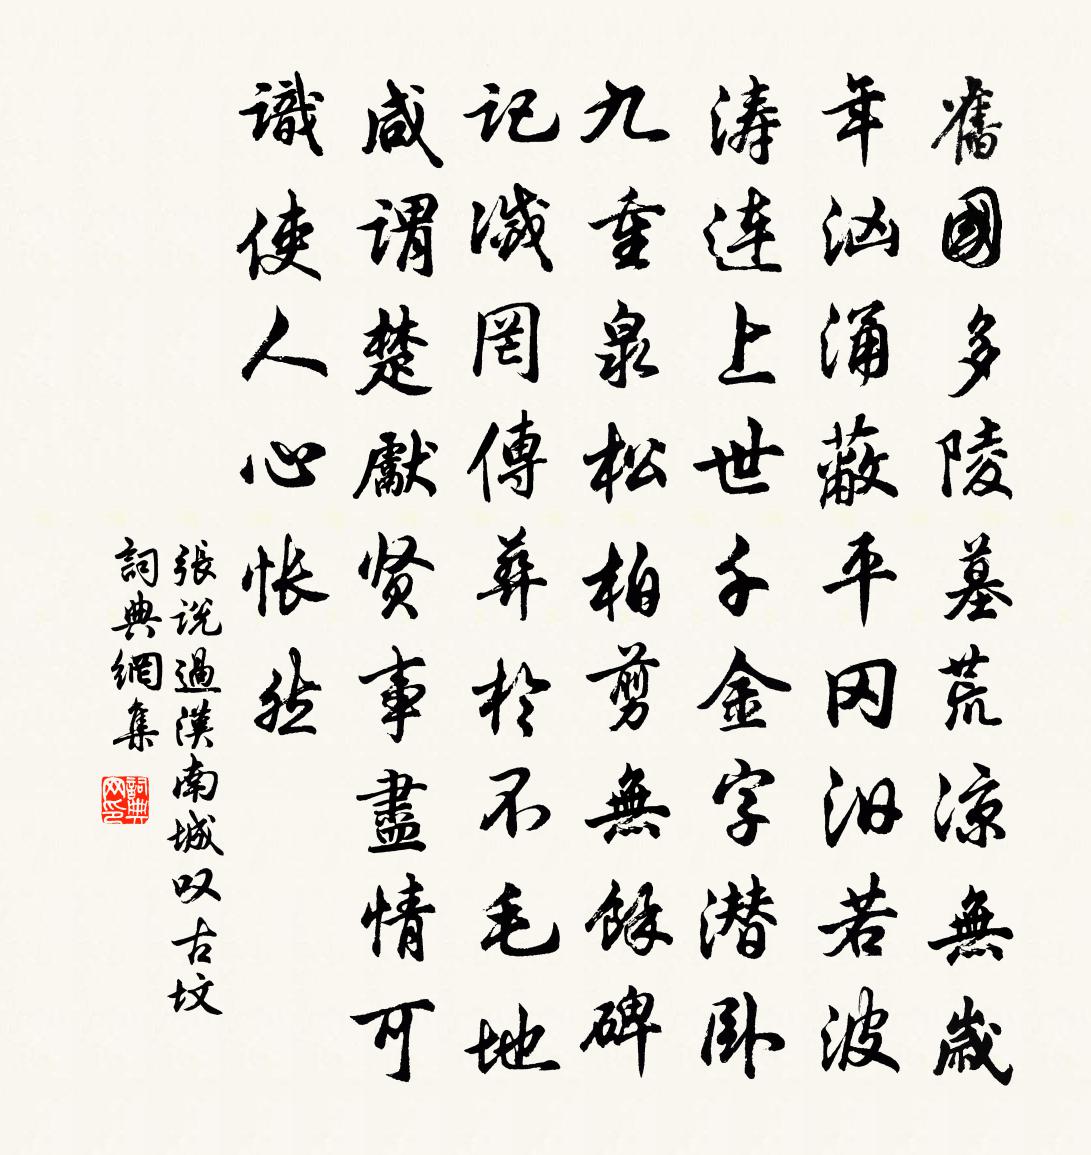 舊國多陵墓荒涼無歲
年汹涌蔽平冈汩若波
涛連上世千金字潜卧
九重泉松柏剪無餘碑
記滅罔傳葬於不毛地
咸謂楚獻贤事盡情可
識使人心怅然
張说過漢南城叹古坟
詞典網集
詞典网印